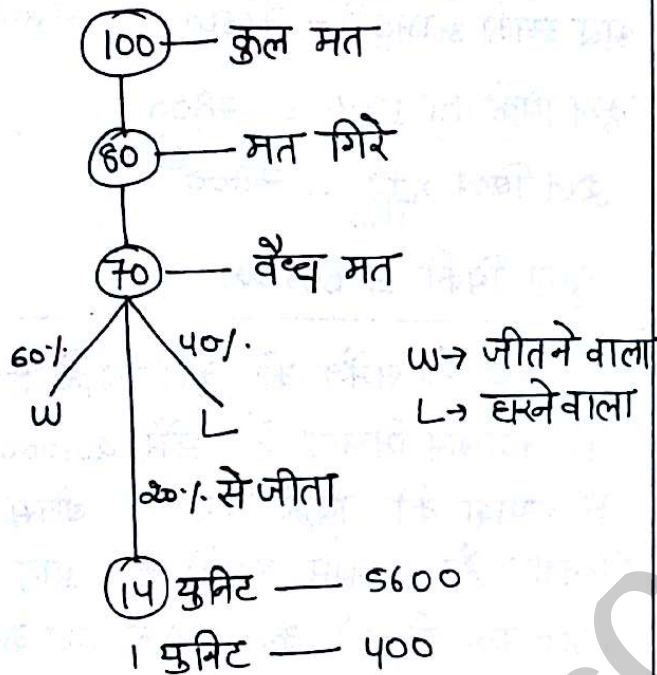 100 — कुल मत
80 — मत गिरे
70 — वैध्य मत
60% 40%
W L
W→ जीतने वाला
L→ हारने वाला
20% से जीता
14 युनिट — 5600
1 युनिट — 400